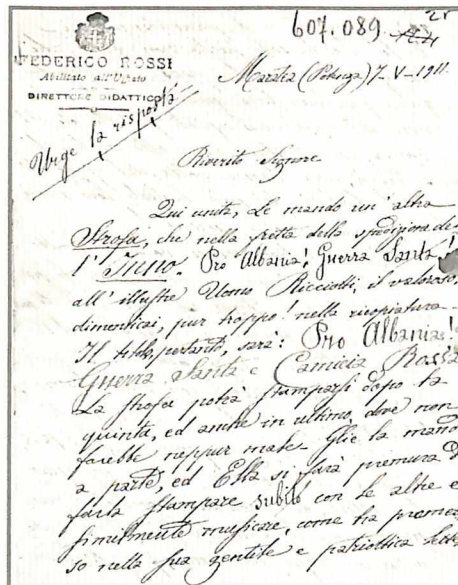 607.089
FEDERICO ROSSI
Abilitato all'Ufficio
DIRETTORE DIDATTICO
Maratea (Potenza) 7-V-1911.
Urge la risposta
Riverito Signore
Qui unita, Le mando un'altra
Strofa, che nella fretta della spedizione del-
l'Inno. Pro Albania! Guerra Santa!
all'illustre Uomo Ricciotti, il valoroso,
dimenticai, pur troppo! nella ricopiatura.
Il titolo, pertanto, sarà: Pro Albania!
Guerra Santa e Camicia Rossa
La strofa potrà stamparsi dopo la
quinta, ed anche in ultimo, dove non
farebbe neppur male. Glie la mando
a parte, ed Ella si farà premura di
farla stampare subito con le altre e
finalmente musicare, come ha promes-
so nella sua gentile e patriottica lettera